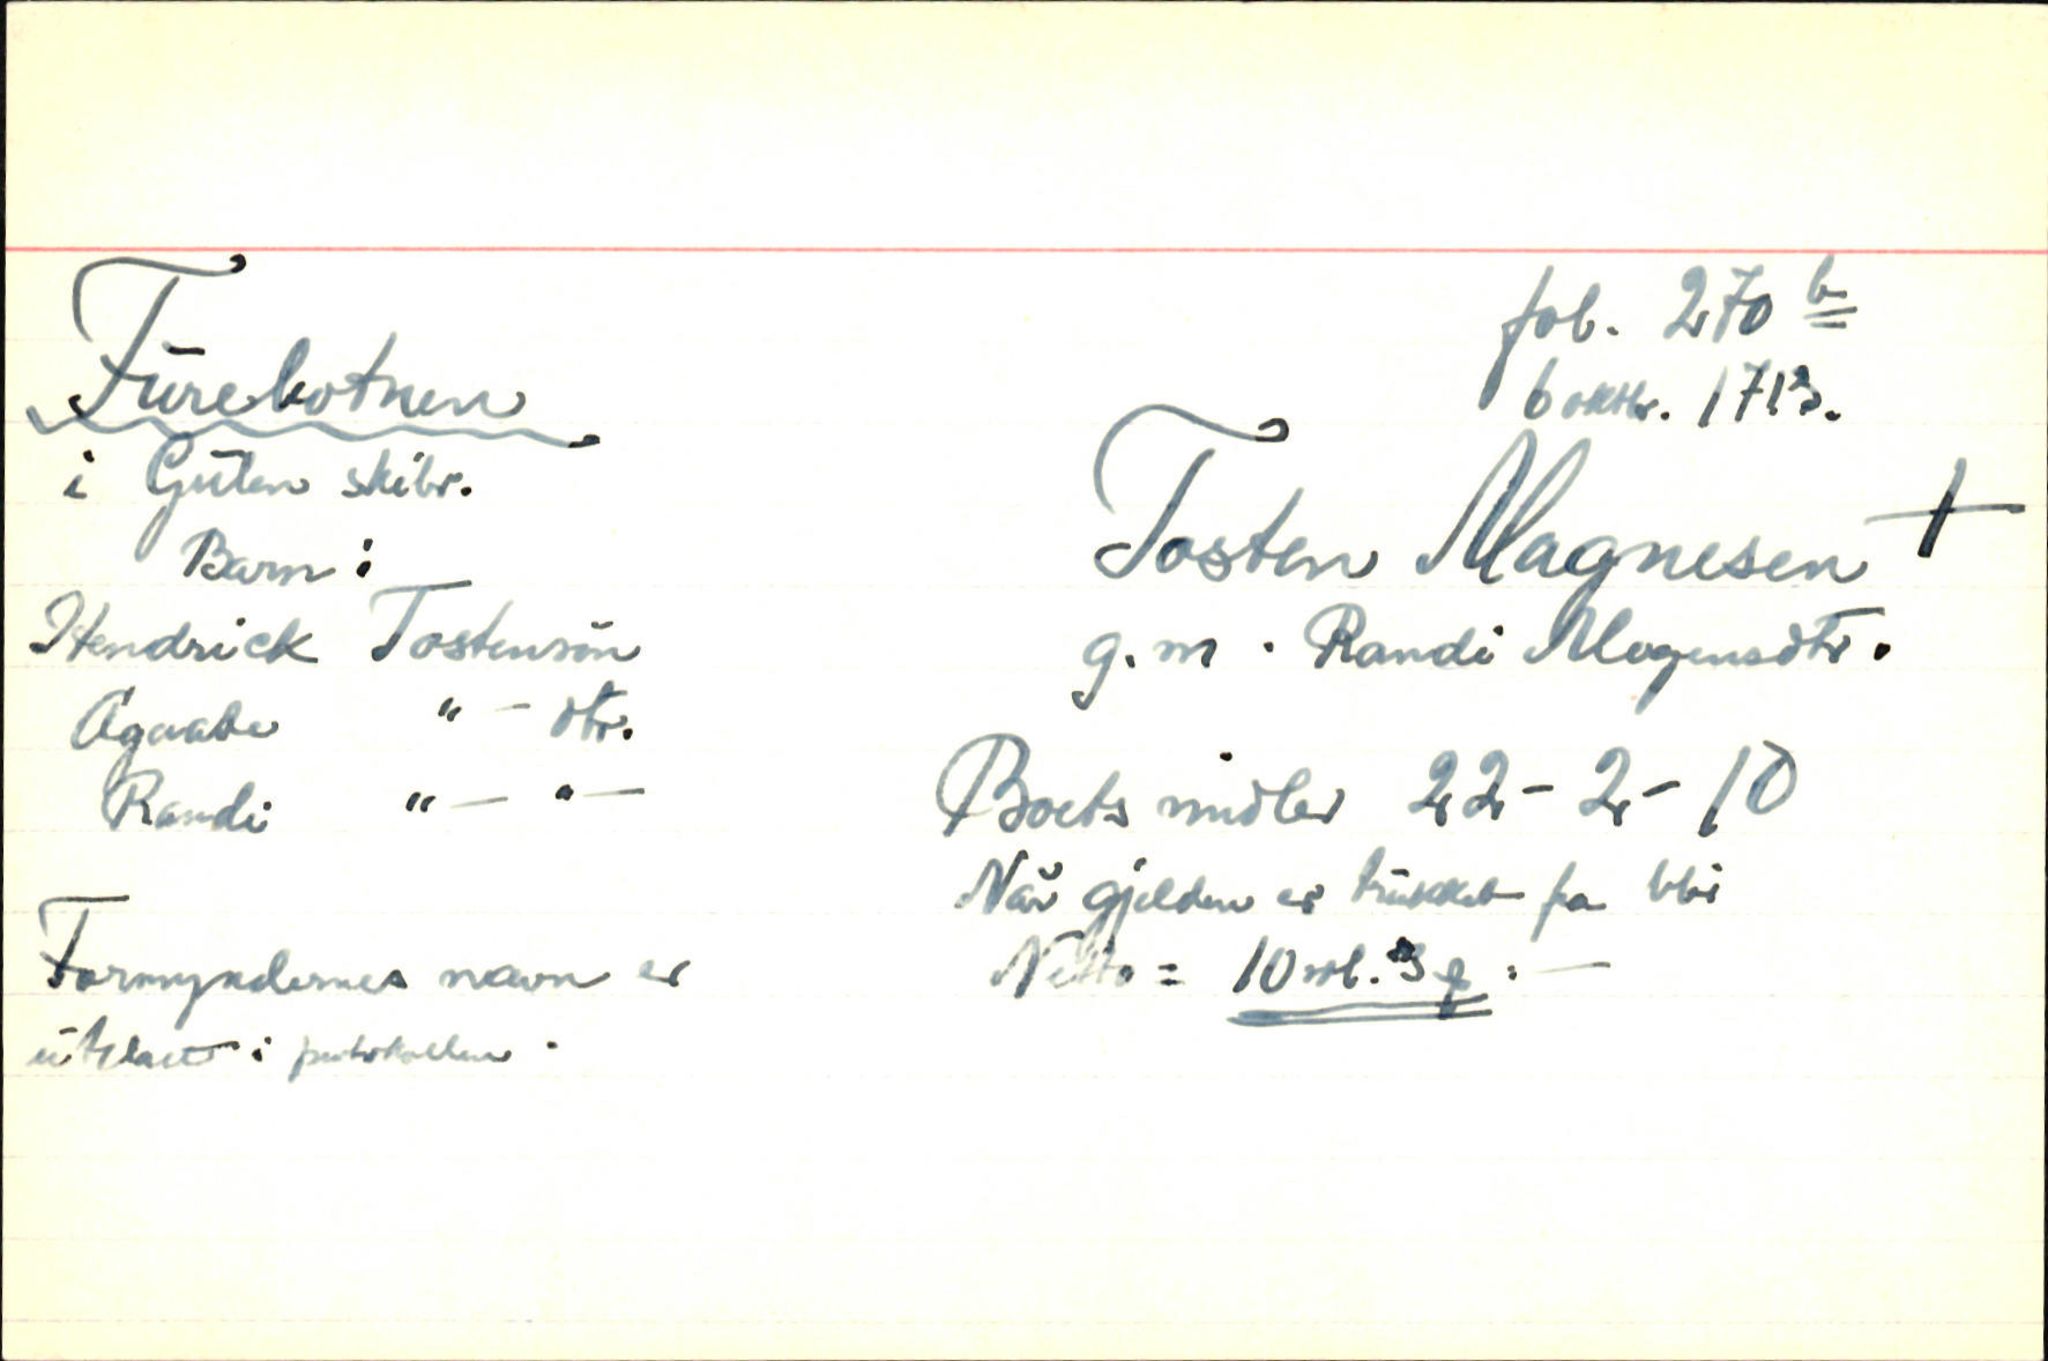 Furebotnen
i Gulen skibr.
Barn:
Hendrick Tostensön
Agaate " — dtr.
Randi " — " —
Formyndernes navn er
utelatt i protokollen.
fol. 270 b
6 oktbr. 1713.
Tosten Magnesen +
g. m. Randi Mogensdtr.
Boets midler 22 - 2 - 10
Når gjelden er trukket fra blir
Netto = 10 rdl. 3 :—